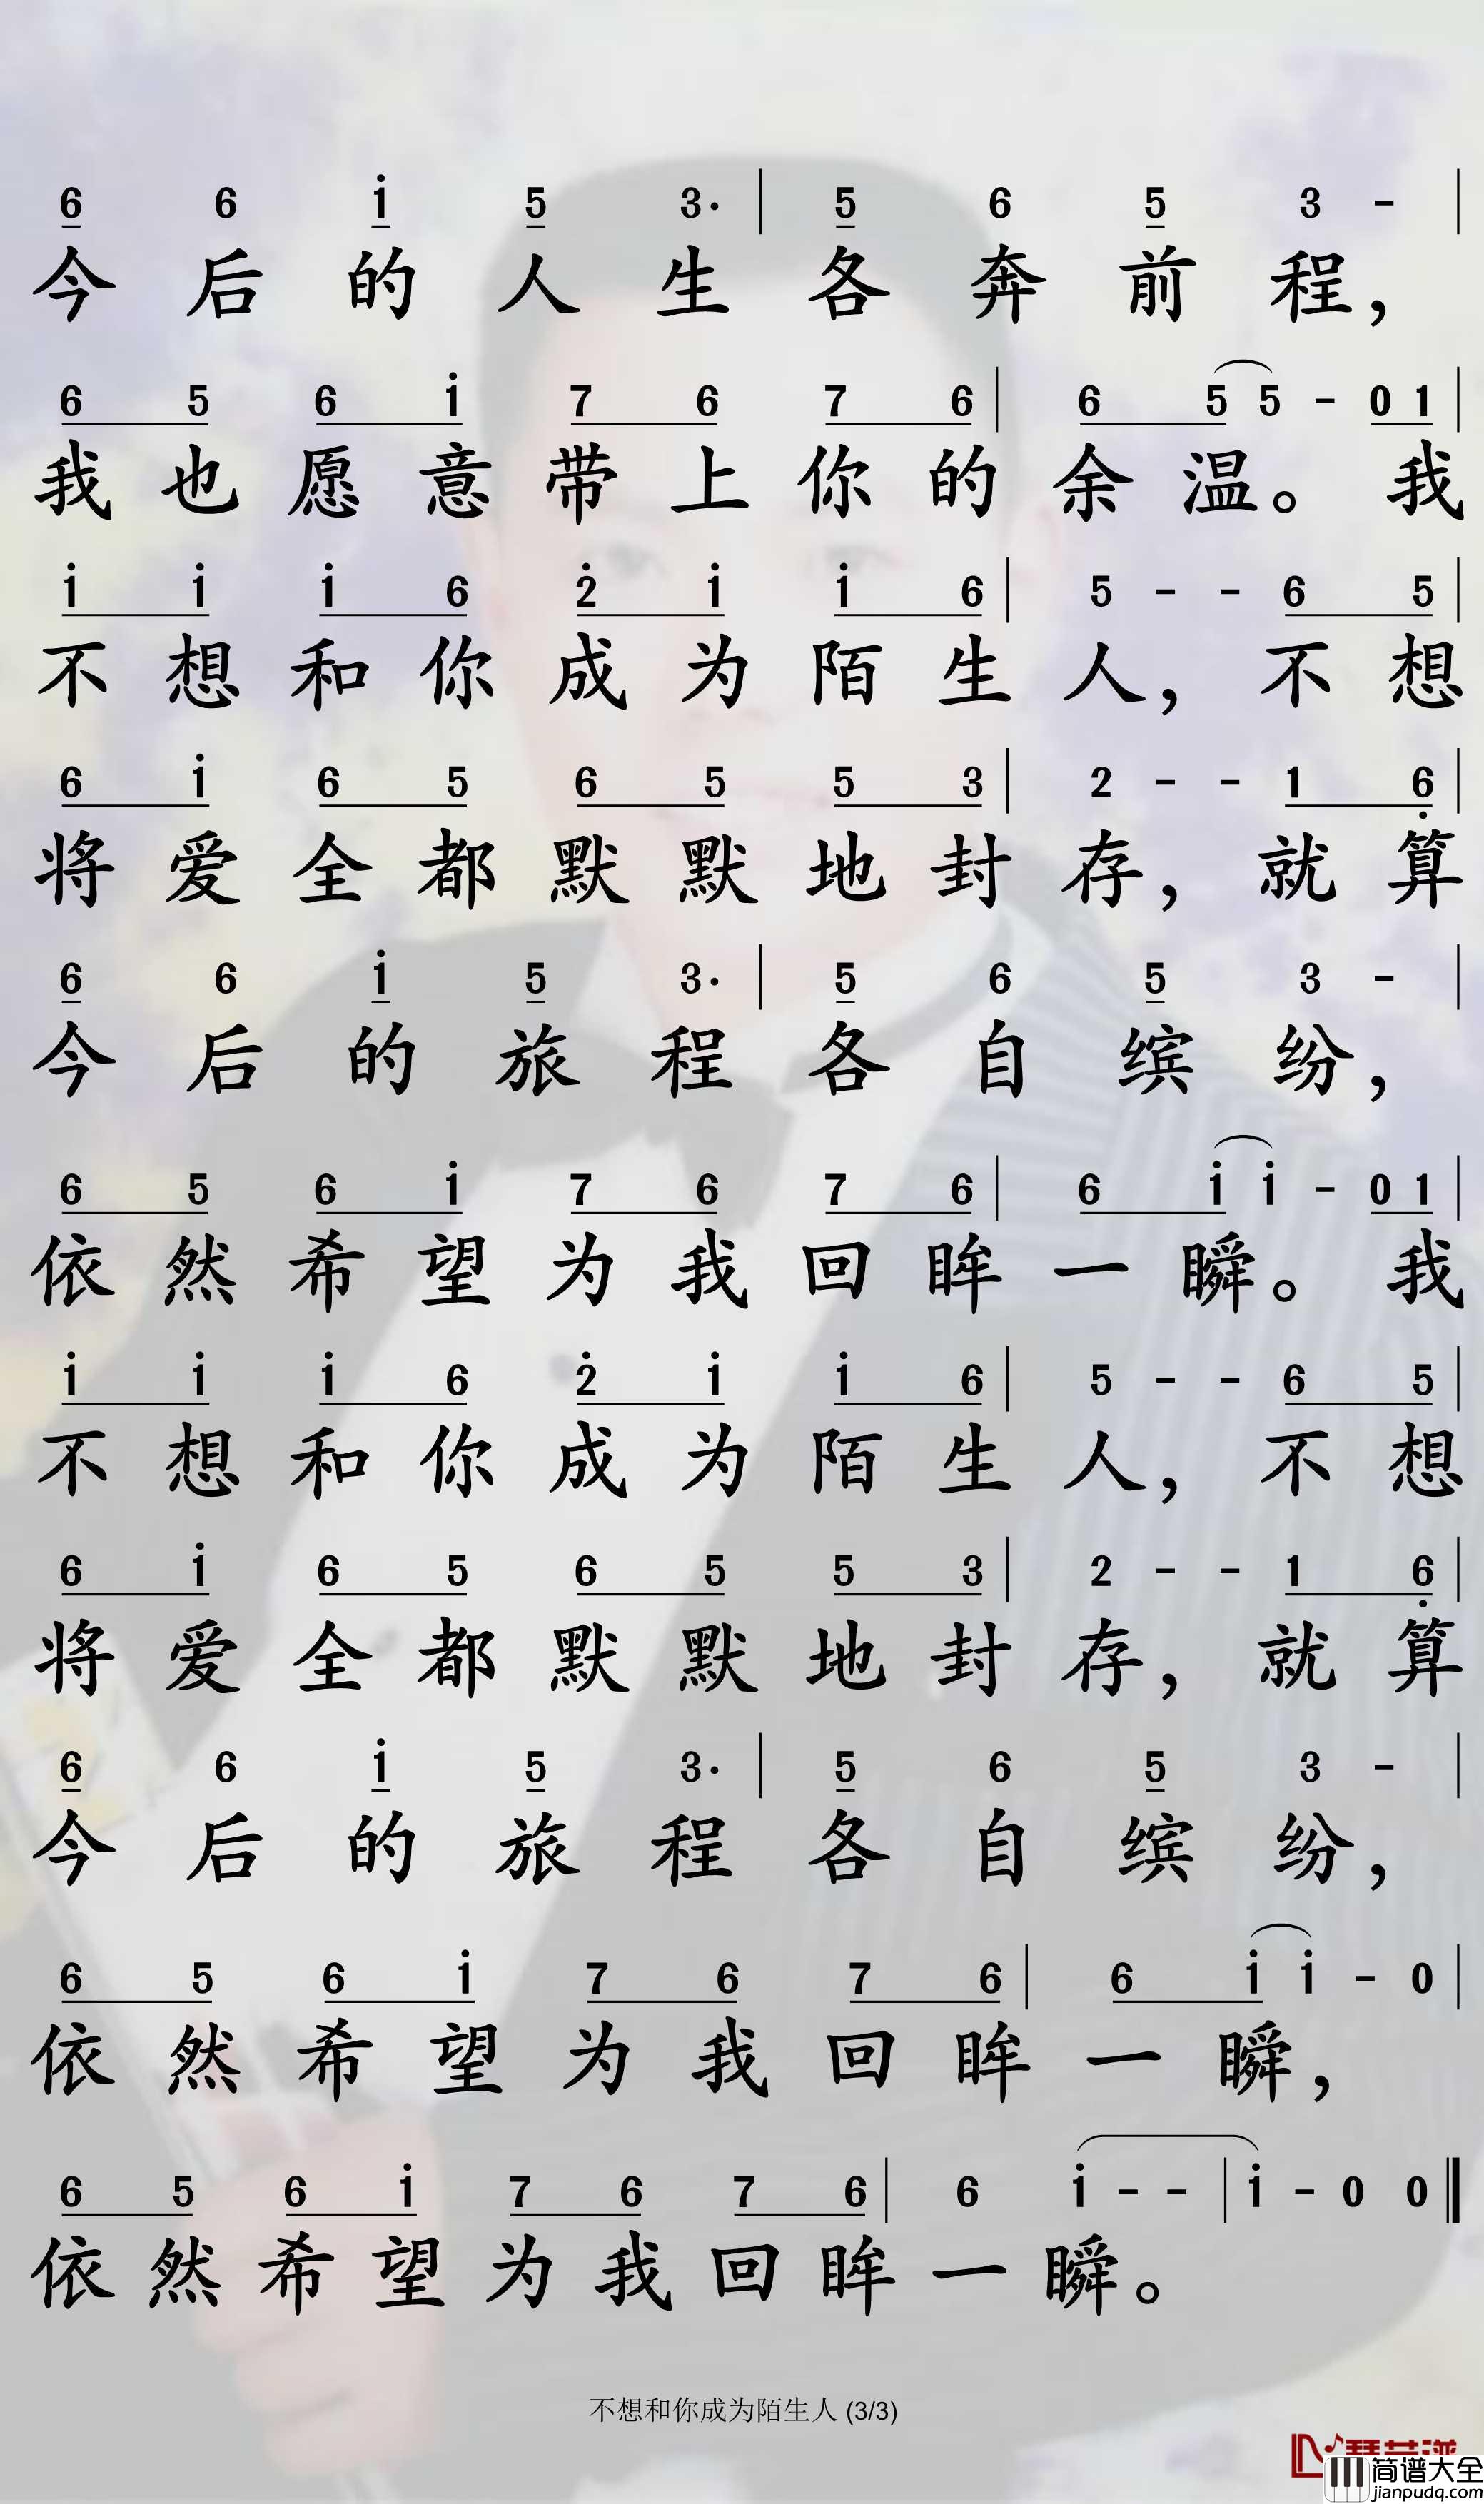 6 6 i 5 3· | 5 6 5 3 - |
今后的人生各奔前程，
6 5 6 i 7 6 7 6 | 6 5 5 - 0 1 |
我也愿意带上你的余温。我
i i i 6 2 i i 6 | 5 - - 6 5 |
不想和你成为陌生人，不想
6 i 6 5 6 5 5 3 | 2 - - 1 6 |
将爱全都默默地封存，就算
6 6 i 5 3· | 5 6 5 3 - |
今后的旅程各自缤纷，
6 5 6 i 7 6 7 6 | 6 i i - 0 1 |
依然希望为我回眸一瞬。我
i i i 6 2 i i 6 | 5 - - 6 5 |
不想和你成为陌生人，不想
6 i 6 5 6 5 5 3 | 2 - - 1 6 |
将爱全都默默地封存，就算
6 6 i 5 3· | 5 6 5 3 - |
今后的旅程各自缤纷，
6 5 6 i 7 6 7 6 | 6 i i - 0 |
依然希望为我回眸一瞬，
6 5 6 i 7 6 7 6 | 6 i - - | i - 0 0 ‖
依然希望为我回眸一瞬。
不想和你成为陌生人 (3/3)
简谱大全
jianpudq.com